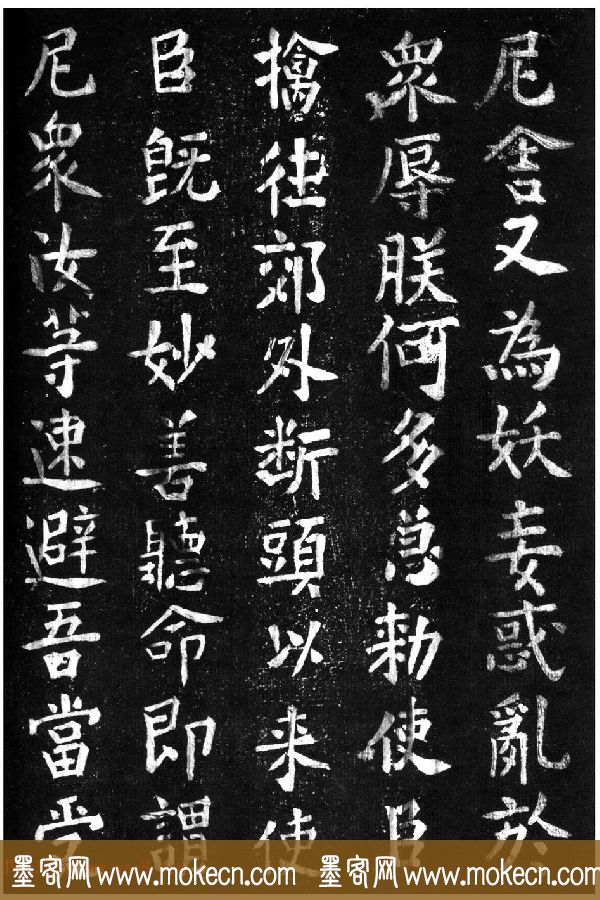 尼舍又為妖妄惑亂於
眾辱朕何多怱勑使臣
擒往郊外断頭以来使
臣既至妙善聽命即謂
尼眾汝等速避吾當受
墨客网 www.mokecn.com 墨客网 www.mokecn.com